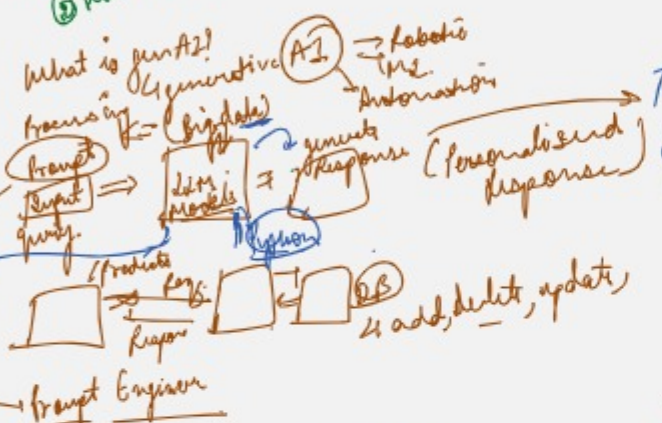 What is genAI?
↳ generative AI → Robotic
→ ML
→ Automation
Processing ← (Big data)
Prompt
Input ⇒ LLM Models ⇒ generate Response (Personalised Response)
query.
Python
Req.
Respone
DB
↳ add, delete, update,
→ Prompt Engineer